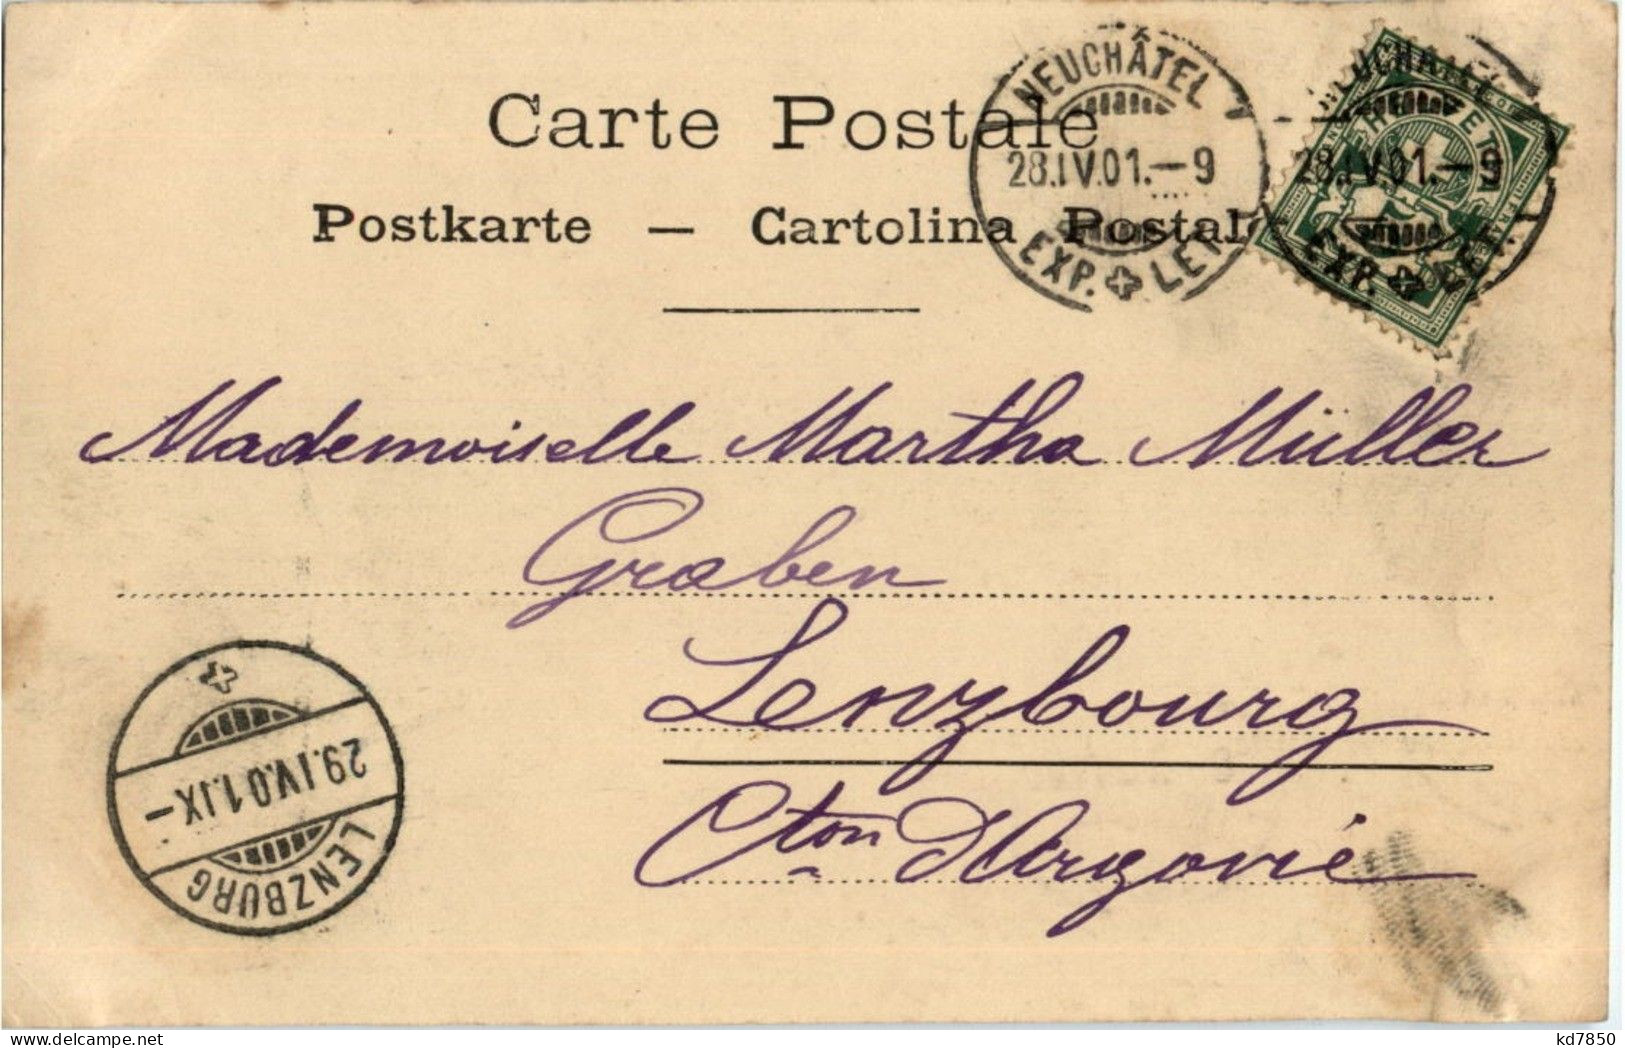 Carte Postale
Postkarte — Cartolina Postale
NEUCHÂTEL 1
28.IV.01.–9
EXP. LET.
UCHATEL
28.IV.01.–9
EXP. LET.
HELVETIA
Mademoiselle Martha Müller
Graben
Lenzbourg
Cton d'Argovie
29.IV.01.IX–
LENZBURG
kd7850